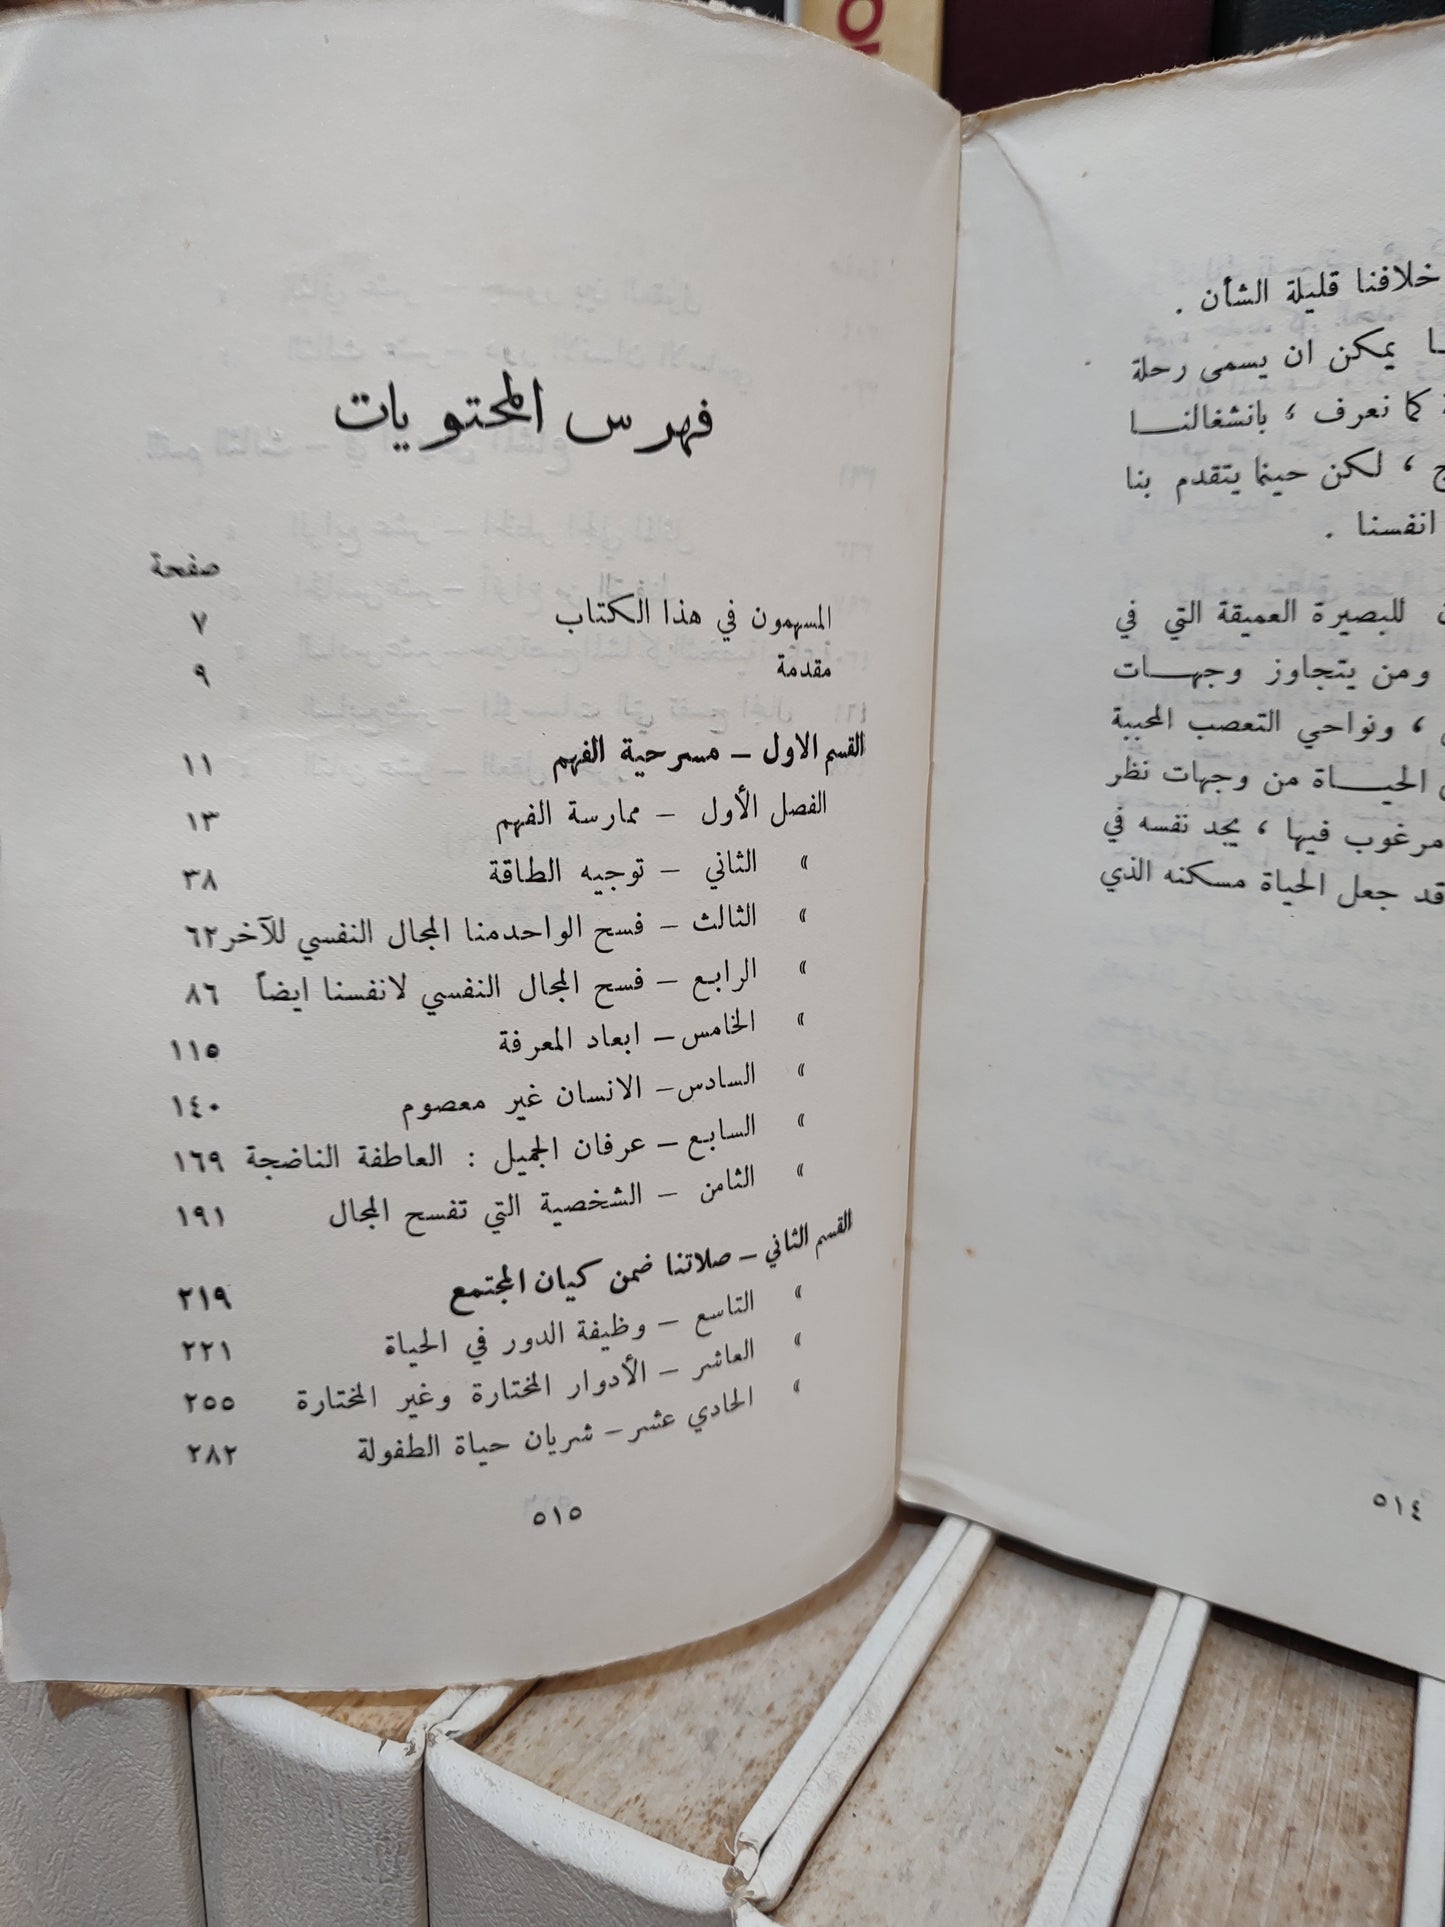 خلافنا قليلة الشأن .
يمكن ان يسمى رحلة
كما نعرف ، بانشغالنـــا
، لكن حينما يتقدم بنا
انفسنا .
للبصيرة العميقة التي في
ومن يتجاوز وجهـــات
، ونواحي التعصب المحببة
الحيـــاة من وجهات نظر
مرغوب فيها ، يجد نفسه في
قد جعل الحياة مسكنه الذي
٥١٤
فهرس المحتويات
صفحة
المسهمون في هذا الكتاب ٧
مقدمة ٩
القسم الاول – مسرحية الفهم ١١
الفصل الأول – ممارسة الفهم ١٣
» الثاني – توجيه الطاقة ٣٨
» الثالث – فسح الواحد منا المجال النفسي للآخر ٦٢
» الرابع – فسح المجال النفسي لانفسنا ايضاً ٨٦
» الخامس – ابعاد المعرفة ١١٥
» السادس – الانسان غير معصوم ١٤٠
» السابع – عرفان الجميل : العاطفة الناضجة ١٦٩
» الثامن – الشخصية التي تفسح المجال ١٩١
القسم الثاني – صلاتنا ضمن كيان المجتمع ٢١٩
» التاسع – وظيفة الدور في الحياة ٢٢١
» العاشر – الأدوار المختارة وغير المختارة ٢٥٥
» الحادي عشر – شريان حياة الطفولة ٢٨٢
٥١٥